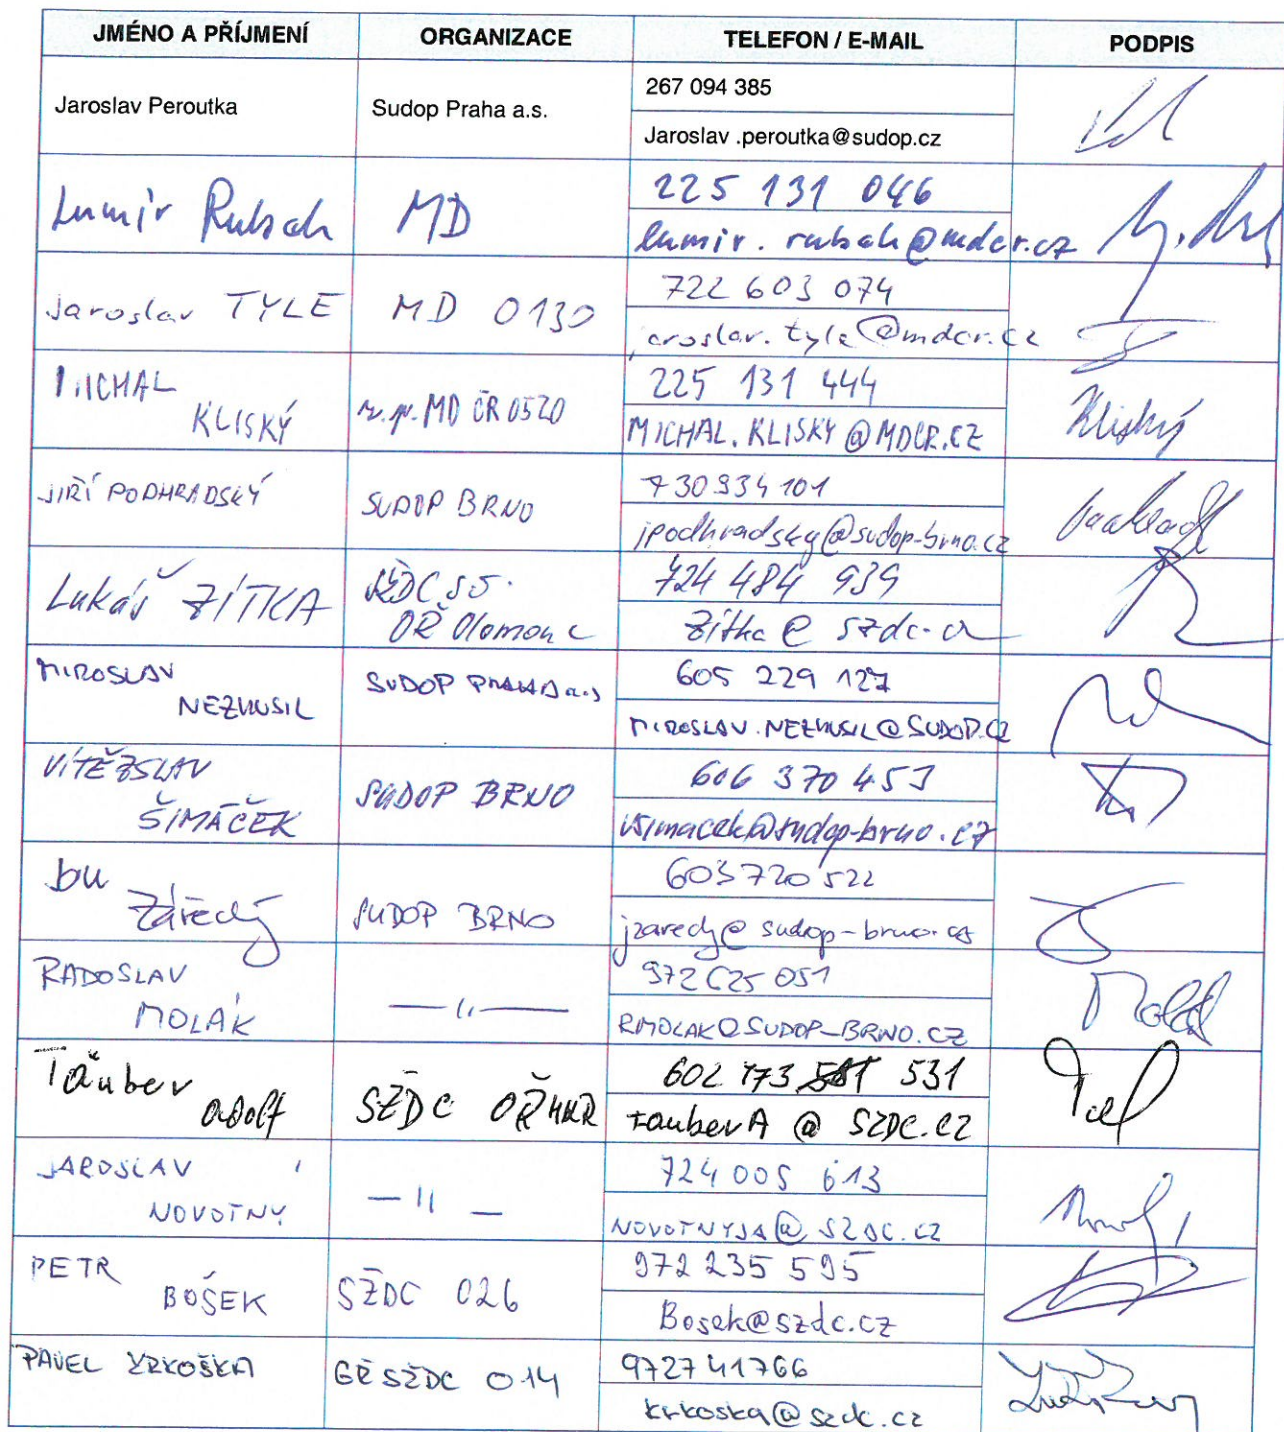 JMÉNO A PŘÍJMENÍ ORGANIZACE TELEFON / E-MAIL PODPIS
Jaroslav Peroutka Sudop Praha a.s. 267 094 385
Jaroslav .peroutka@sudop.cz
Lumír Rubah MD 225 131 046
lumir.rubah@mdcr.cz
Jaroslav TYLE MD 0130 722 603 074
jaroslav.tyle@mdcr.cz
MICHAL KLISKÝ MD ČR 0520 225 131 444 Kliský
MICHAL.KLISKY@MDCR.CZ
JIŘÍ PODHRADSKÝ SUDOP BRNO 730 934 101
jpodhradsky@sudop-brno.cz
Lukáš ZÍTKA SŽDC s.o. 724 484 939
OŘ Olomouc Zitka@szdc.cz
MIROSLAV SUDOP PRAHA a.s 605 229 127
NEZKUSIL MIROSLAV.NEZKUSIL@SUDOP.CZ
VÍTĚZSLAV SUDOP BRNO 606 370 453
ŠIMÁČEK vsimacek@sudop-brno.cz
Zářecký SUDOP BRNO 603 720 522
jzarecky@sudop-brno.cz
RADOSLAV —〃— 972 625 051
MOLÁK RMOLAK@SUDOP-BRNO.CZ
Täuber SŽDC OŘ HKR 602 173 531
Adolf tauberA@SZDC.CZ
JAROSLAV —〃— 724 005 613
NOVOTNÝ NOVOTNYJA@SZDC.CZ
PETR SŽDC 026 972 235 595
BOŠEK Bosek@szdc.cz
PAVEL KRKOŠKA GŘ SŽDC 014 972741766
krkoska@szdc.cz